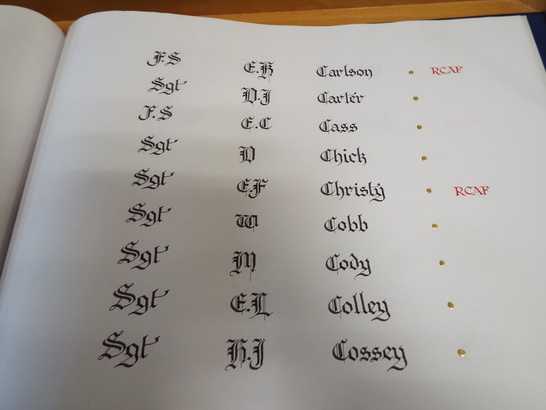 F.S E.H Carlson RCAF
Sgt D.J Carter
F.S E.C Cass
Sgt D Chick
Sgt E.F Christy RCAF
Sgt W Cobb
Sgt M Cody
Sgt E.L Colley
Sgt H.J Cossey